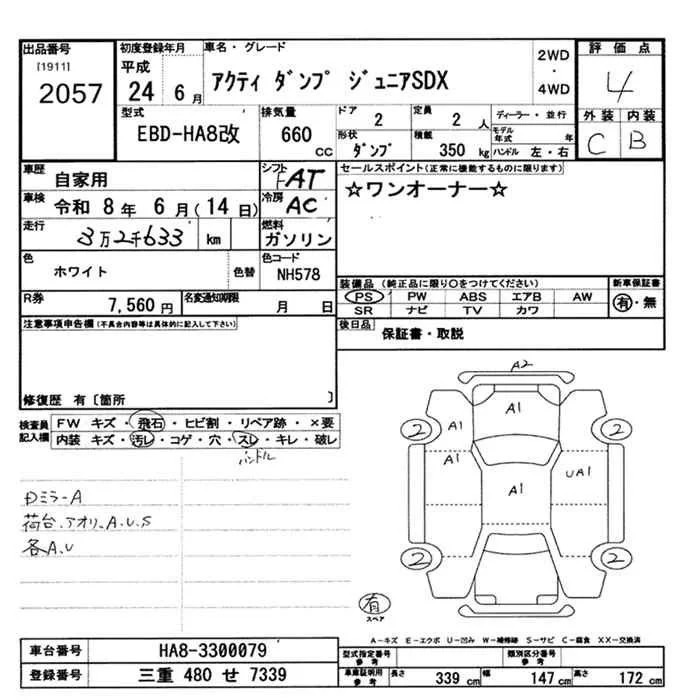 出品番号 [1911] 2057
初度登録年月 平成 24 6月
車名・グレード アクティ ダンプ ジュニアSDX
2WD ・ 4WD
評価点 4
外装 C 内装 B
型式 EBD-HA8改
排気量 660 CC
ドア 2
定員 2 人
形状 ダンプ
積載 350 kg
ディーラー・並行
モデル年式 年
ハンドル 左・右
車歴 自家用
シフト FAT
車検 令和 8年 6月(14日)
冷房 AC
走行 3万2千633 km
燃料 ガソリン
色 ホワイト 色替
色コード NH578
R券 7,560円
名変通知期限 月 日
セールスポイント(正常に機能するものに限ります)
☆ワンオーナー☆
装備品(純正品に限り○をつけてください)
PS PW ABS エアB AW
SR ナビ TV カワ
新車保証書 有・無
後日品 保証書・取説
注意事項申告欄(不具合内容等は具体的に記入して下さい)
修復歴 有〔箇所 〕
検査員記入欄
FW キズ・飛石・ヒビ割・リペア跡・×要
内装 キズ・汚レ・コゲ・穴・スレ・キレ・破レ
ハンドル
Dミラ-A
荷台.アオリ.A.U.S
各A.U
A2
A1
2 A1 2
A1 UA1
A1
2 2
有
スペア
A-キズ E-エクボ U-凹み W-補修跡 S-サビ C-腐食 XX-交換済
車台番号 HA8-3300079
登録番号 三重 480 せ 7339
型式指定番号 参考
類別区分番号 参考
車庫証明用 参考 長さ 339 cm 幅 147 cm 高さ 172 cm